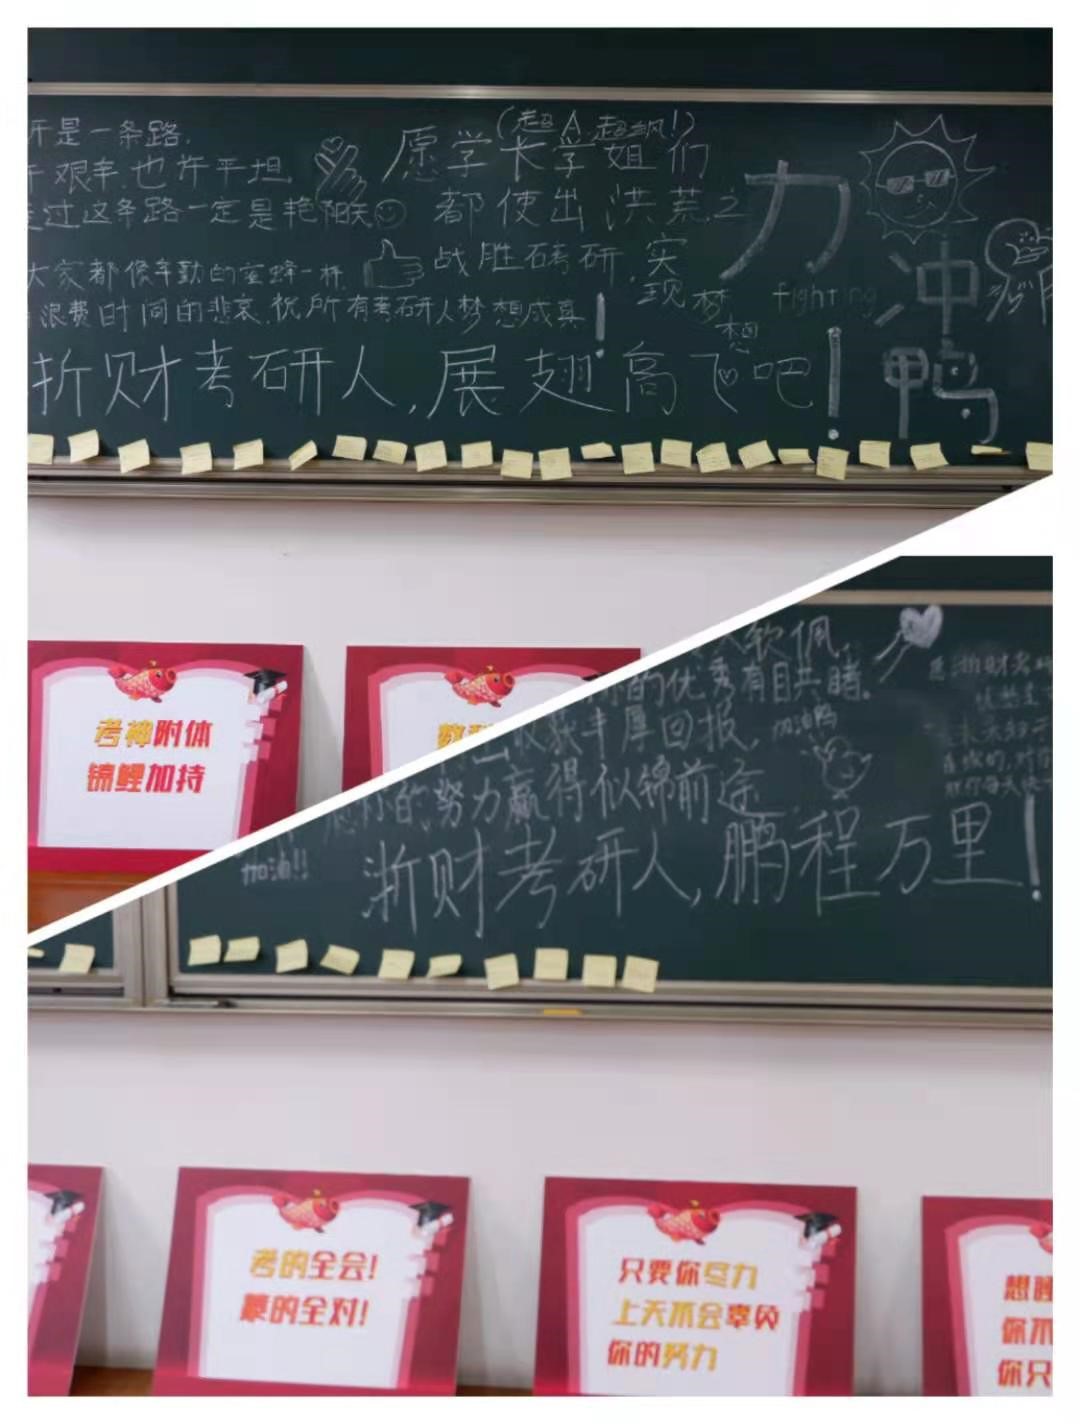 研是一条路,
许艰辛,也许平坦,
走过这条路一定是艳阳天
大家都像辛勤的蜜蜂一样
浪费时间的悲哀.祝所有考研人梦想成真!
浙财考研人,展翅高飞吧!
(超A超飒!)
愿学长学姐们
都使出洪荒之力
战胜考研,实现梦想
fighting
冲鸭
考神附体
锦鲤加持
钦佩,
的优秀有目共睹.
丰厚回报,
你的努力赢得似锦前途
加油鸭
加油!!
浙财考研人,鹏程万里!
考的全会!
蒙的全对!
只要你尽力
上天不会辜负
你的努力
想
你不
你只